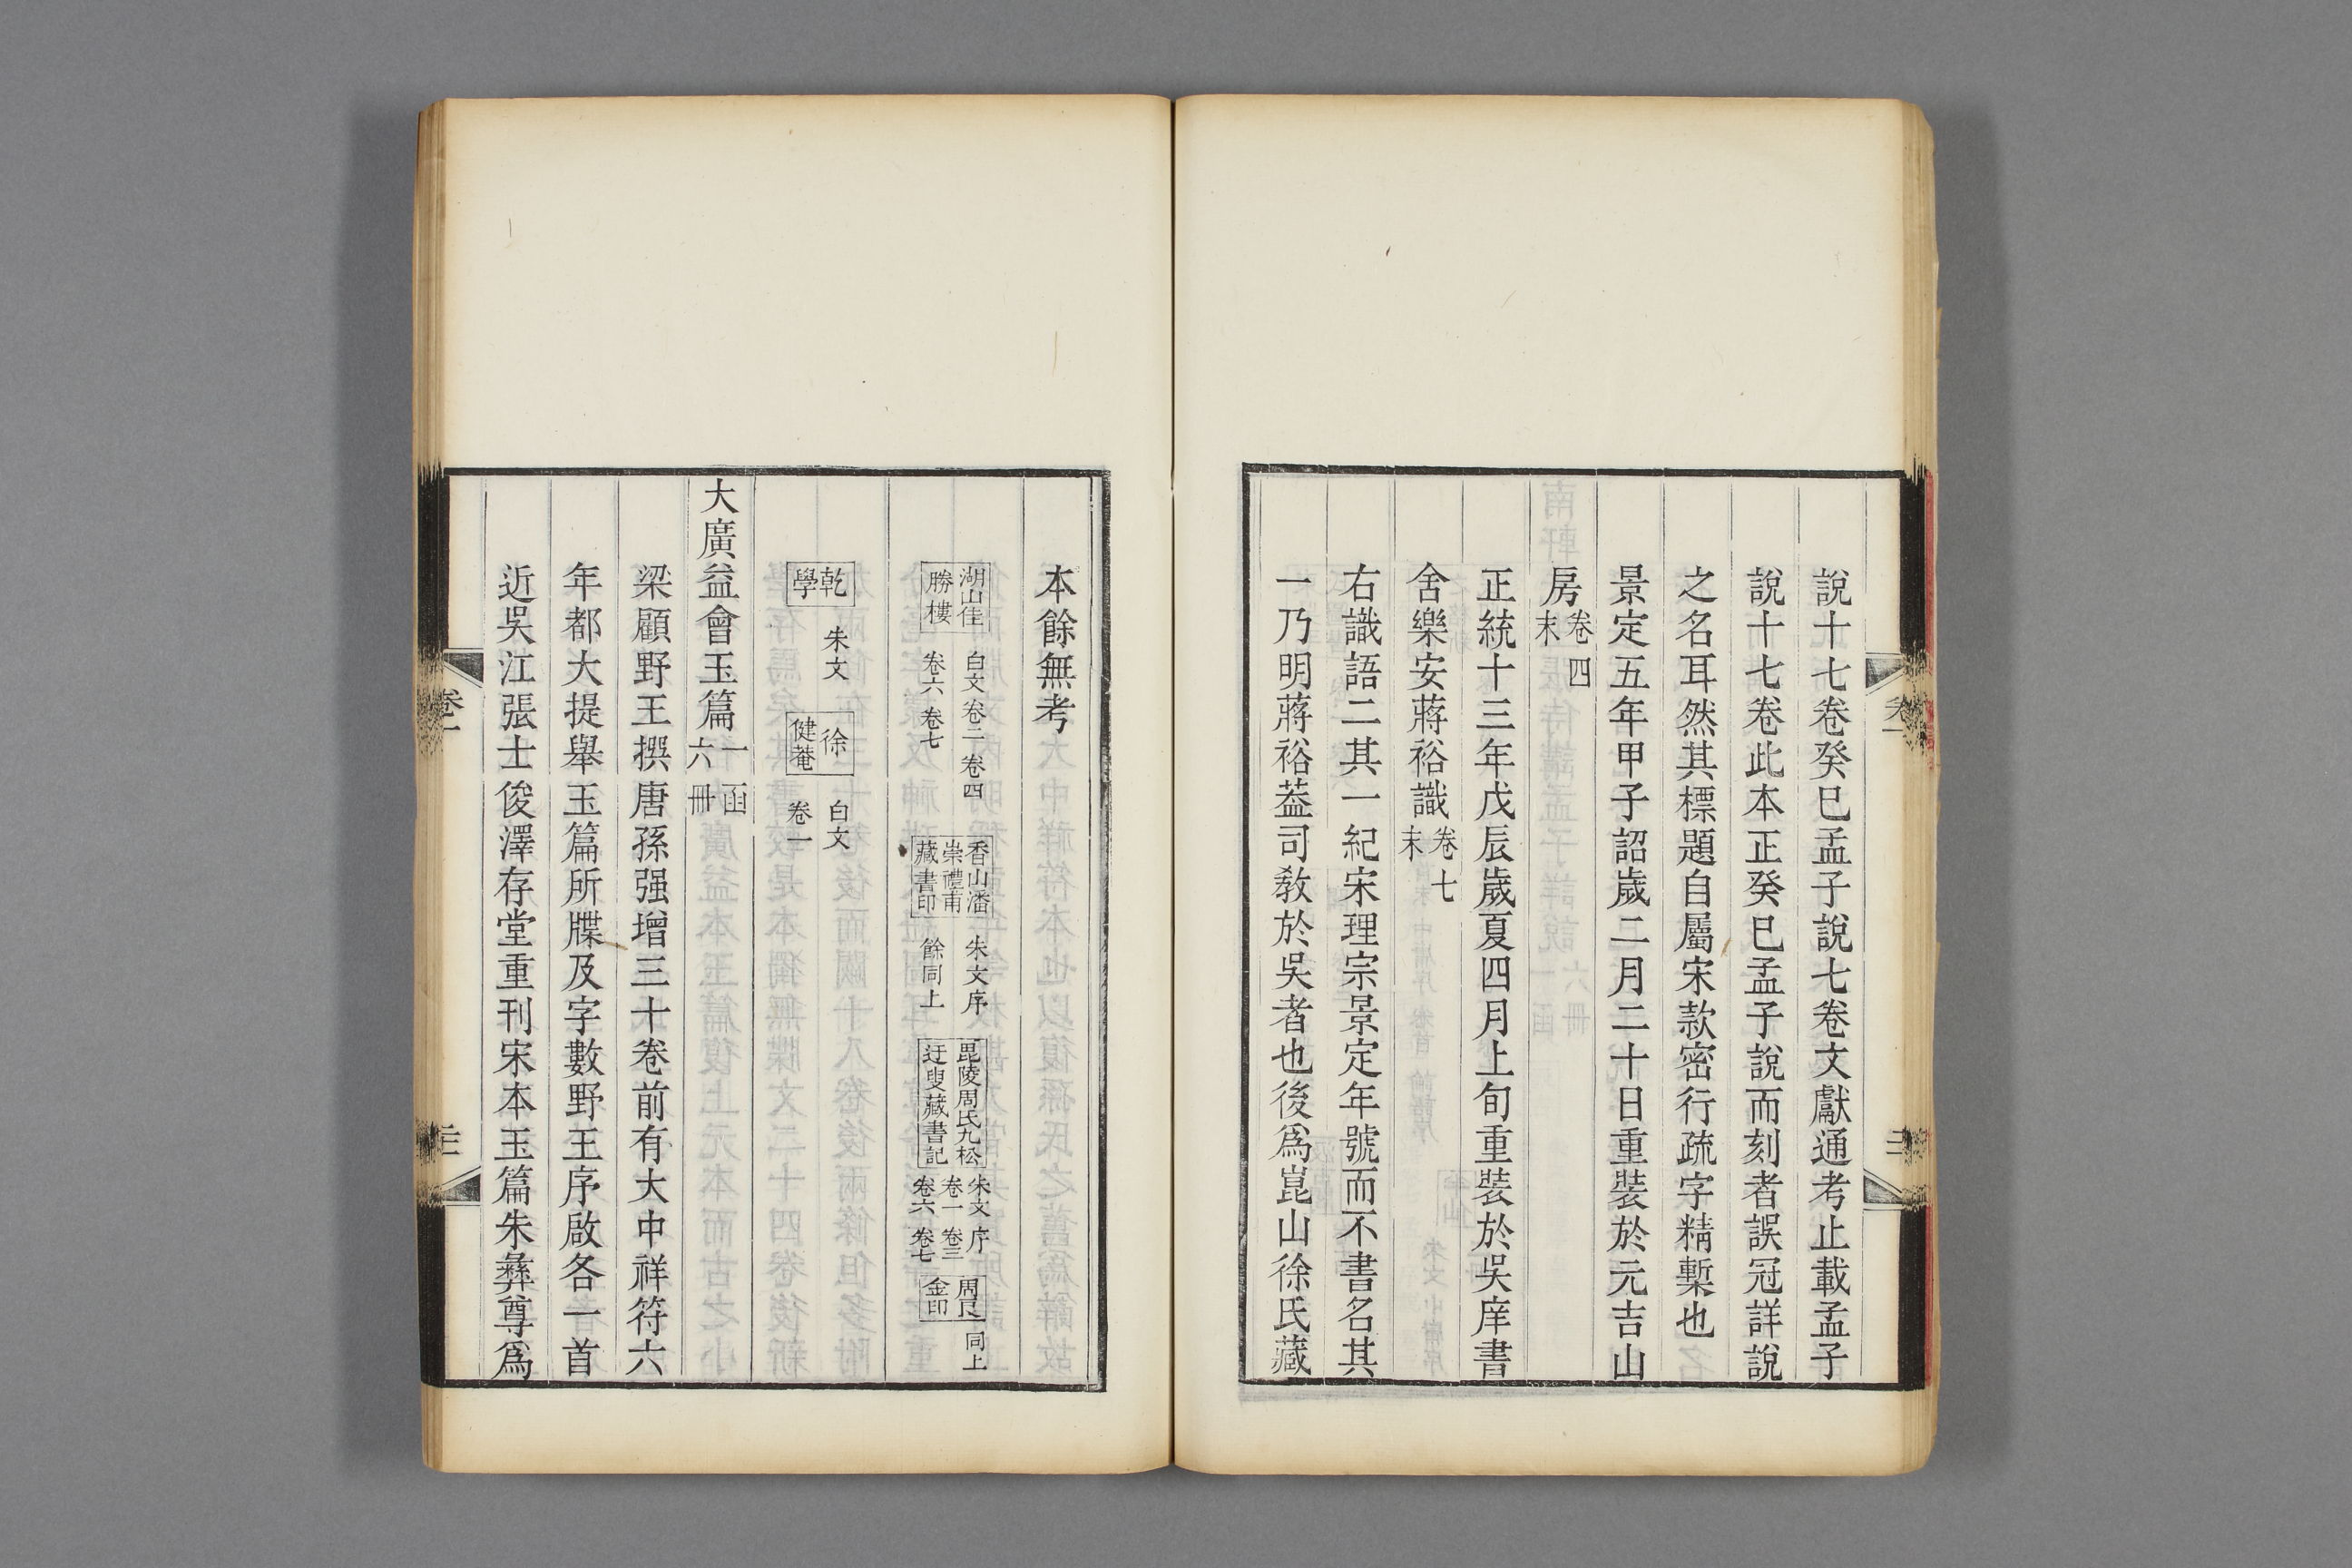 說十七卷癸巳孟子說七卷文獻通考止載孟子
說十七卷此本正癸巳孟子說而刻者誤冠詳說
之名耳然其標題自屬宋款密行疏字精槧也
景定五年甲子詔歲二月二十日重裝於元吉山
房卷四末
正統十三年戊辰歲夏四月上旬重裝於吳庠書
舍樂安蔣裕識卷七末
右識語二其一紀宋理宗景定年號而不書名其
一乃明蔣裕葢司敎於吳者也後爲崑山徐氏藏
本餘無考
湖山佳勝樓 白文卷二卷四卷六卷七 香山潘崇禮甫藏書印 朱文序餘同上 毘陵周氏九松迂叟藏書記 朱文序卷一卷三卷六卷七 周良金印 同上
乾學 朱文 徐健菴 白文卷一
大廣益會玉篇一函六冊
梁顧野王撰唐孫强增三十卷前有大中祥符六
年都大提舉玉篇所牒及字數野王序啟各一首
近吳江張士俊澤存堂重刊宋本玉篇朱彝尊爲
卷一